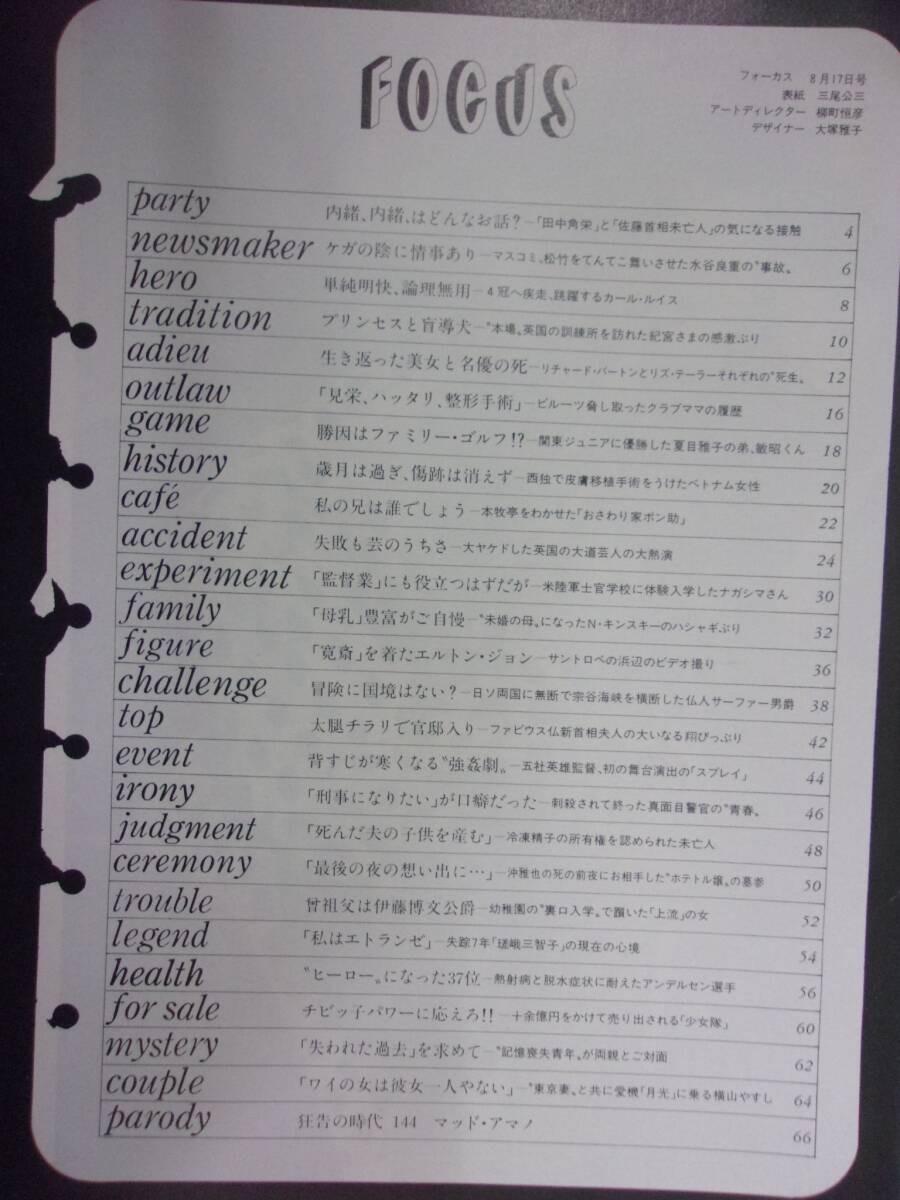 FOCUS
フォーカス 8月17日号
表紙 三尾公三
アートディレクター 柳町恒彦
デザイナー 大塚雅子
party 内緒、内緒、はどんなお話？—「田中角栄」と「佐藤首相未亡人」の気になる接触 4
newsmaker ケガの陰に情事あり—マスコミ、松竹をてんてこ舞いさせた水谷良重の〝事故〟 6
hero 単純明快、論理無用—4冠へ疾走、跳躍するカール・ルイス 8
tradition プリンセスと盲導犬—〝本場〟英国の訓練所を訪れた紀宮さまの感激ぶり 10
adieu 生き返った美女と名優の死—リチャード・バートンとリズ・テーラーそれぞれの〝死生〟 12
outlaw 「見栄、ハッタリ、整形手術」—ビルーツ脅し取ったクラブママの履歴 16
game 勝因はファミリー・ゴルフ!?—関東ジュニアに優勝した夏目雅子の弟、敏昭くん 18
history 歳月は過ぎ、傷跡は消えず—西独で皮膚移植手術をうけたベトナム女性 20
café 私の兄は誰でしょう—本牧亭をわかせた「おさわり家ポン助」 22
accident 失敗も芸のうちさ—大ヤケドした英国の大道芸人の大熱演 24
experiment 「監督業」にも役立つはずだが—米陸軍士官学校に体験入学したナガシマさん 30
family 「母乳」豊富がご自慢—〝未婚の母〟になったN・キンスキーのハシャギぶり 32
figure 「寛斎」を着たエルトン・ジョン—サントロペの浜辺のビデオ撮り 36
challenge 冒険に国境はない？—日ソ両国に無断で宗谷海峡を横断した仏人サーファー男爵 38
top 太腿チラリで官邸入り—ファビウス仏新首相夫人の大いなる翔びっぷり 42
event 背すじが寒くなる〝強姦劇〟—五社英雄監督、初の舞台演出の「スプレイ」 44
irony 「刑事になりたい」が口癖だった—刺殺されて終った真面目警官の〝青春〟 46
judgment 「死んだ夫の子供を産む」—冷凍精子の所有権を認められた未亡人 48
ceremony 「最後の夜の想い出に…」—沖雅也の死の前夜にお相手した〝ホテトル嬢〟の墓参 50
trouble 曾祖父は伊藤博文公爵—幼稚園の〝裏口入学〟で躓いた「上流」の女 52
legend 「私はエトランゼ」—失踪7年「瑳峨三智子」の現在の心境 54
health 〝ヒーロー〟になった37位—熱射病と脱水症状に耐えたアンデルセン選手 56
for sale チビッ子パワーに応えろ!!—十余億円をかけて売り出される「少女隊」 60
mystery 「失われた過去」を求めて—〝記憶喪失青年〟が両親とご対面 62
couple 「ワイの女は彼女一人やない」—〝東京妻〟と共に愛機「月光」に乗る横山やすし 64
parody 狂告の時代 144 マッド・アマノ 66